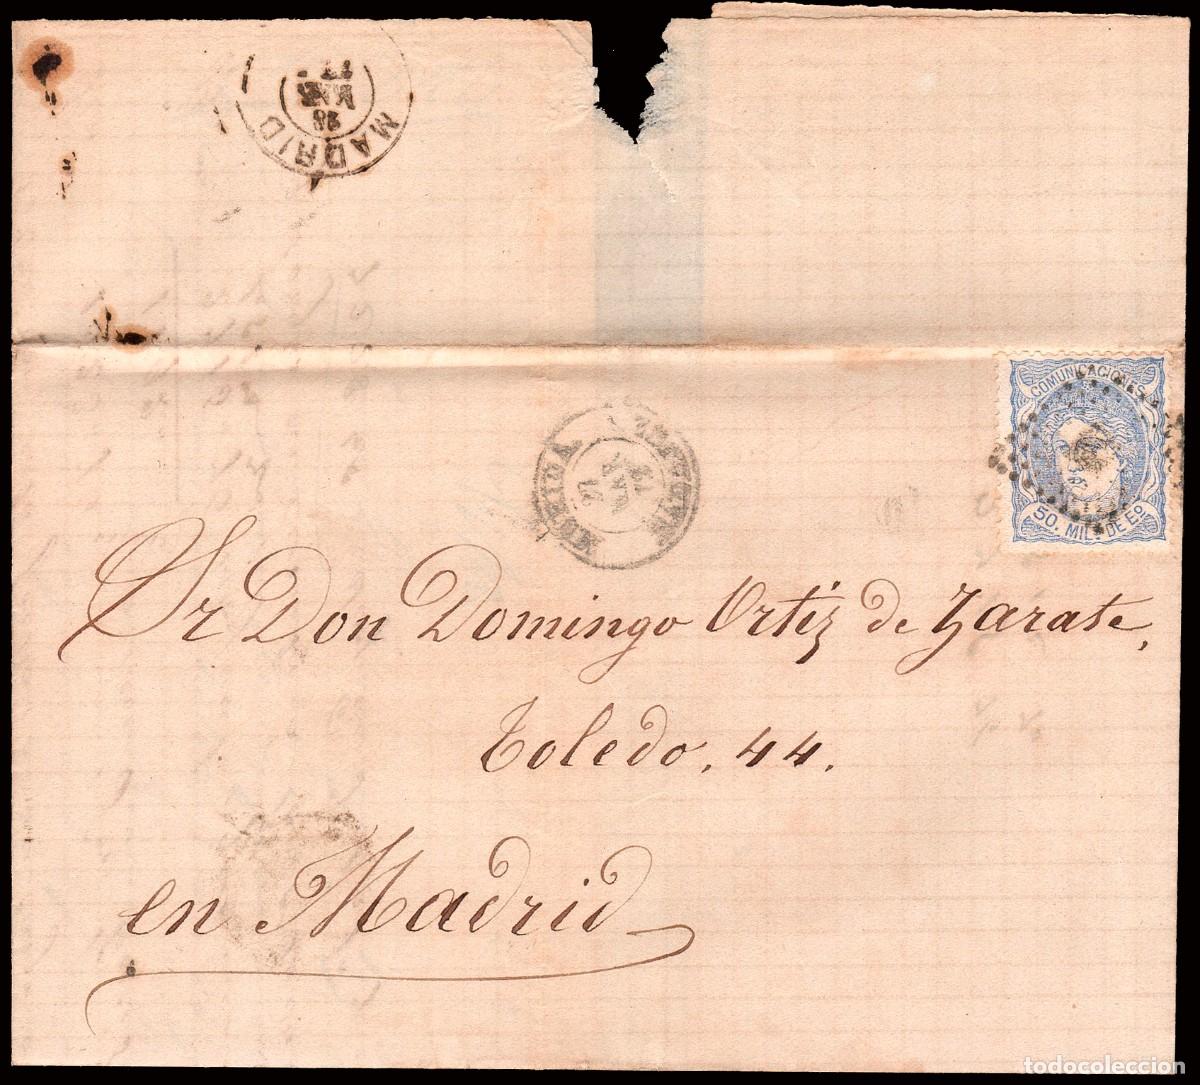 MADRID
28
MAR
COMUNICACIONES
50. MIL. DE Eo.
MERIDA
27
Sr Don Domingo Ortiz de Zarate,
Toledo, 44.
en Madrid
todocoleccion